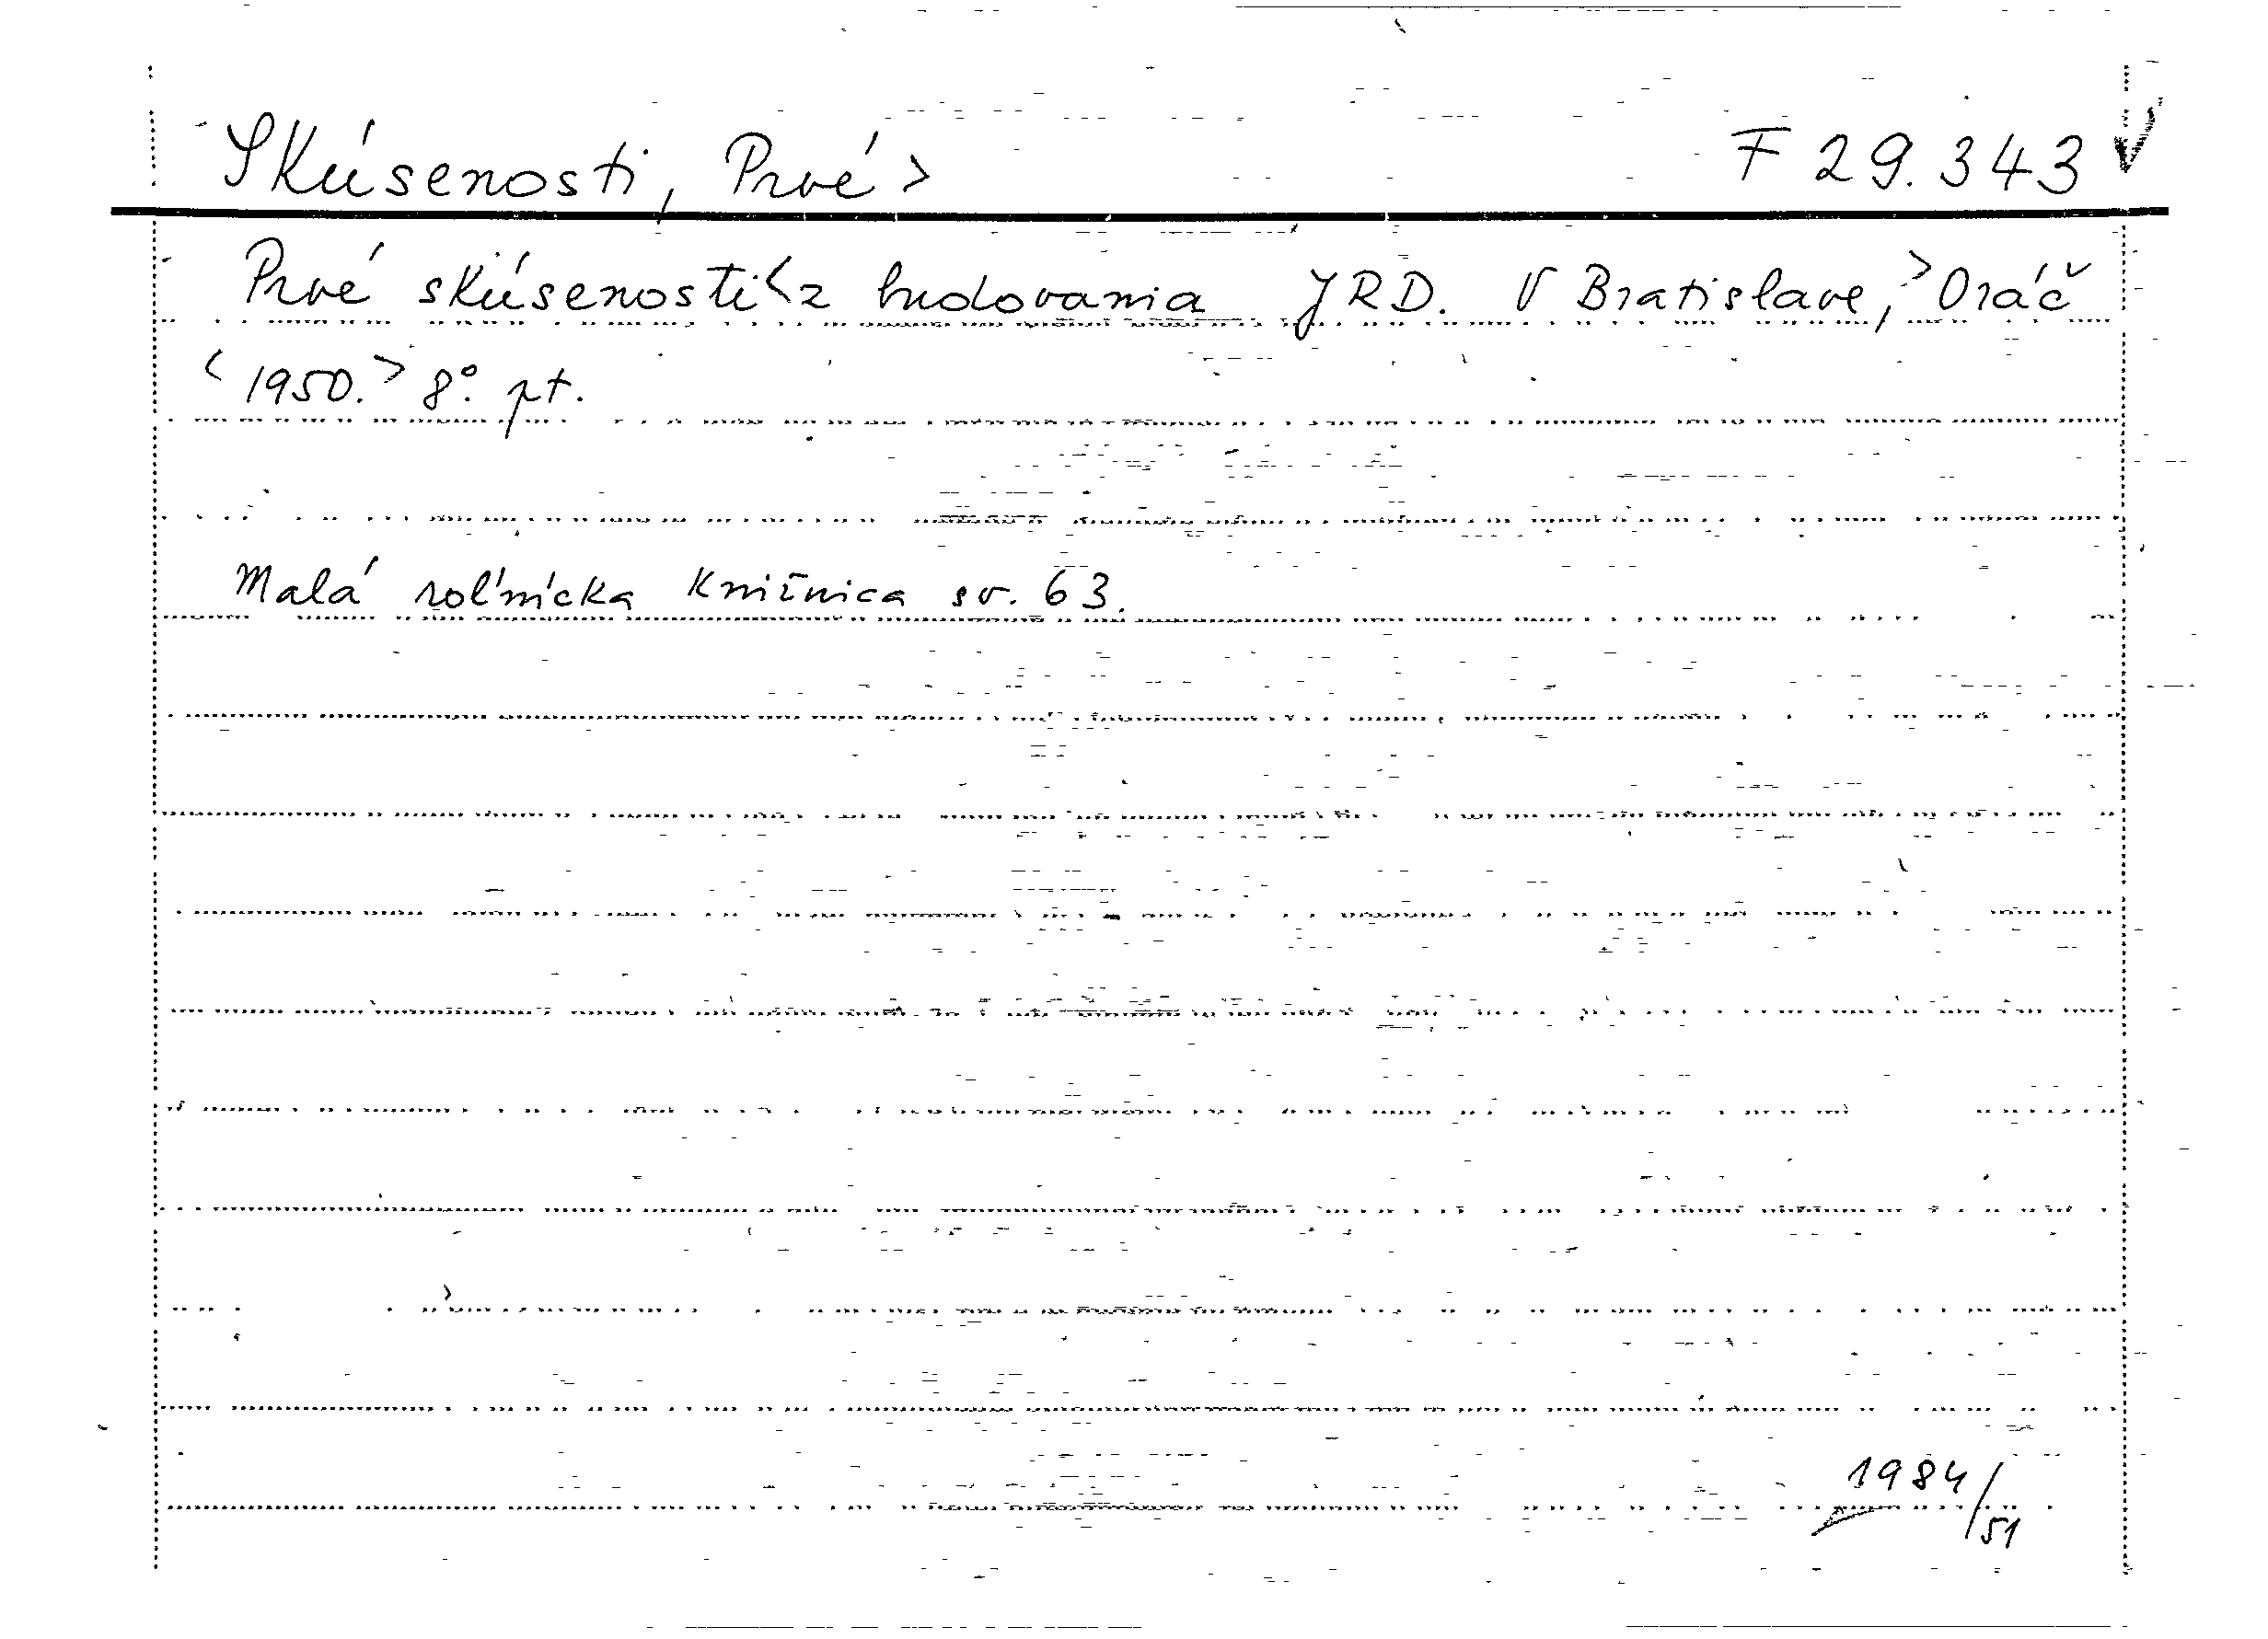 Skúsenosti, Prvé > F 29.343 V
Prvé skúsenosti < z budovania JRD. V Bratislave, > Oráč
< 1950. > 8° pt.
Malá roľnícka knižnica sv. 63.
1984/51